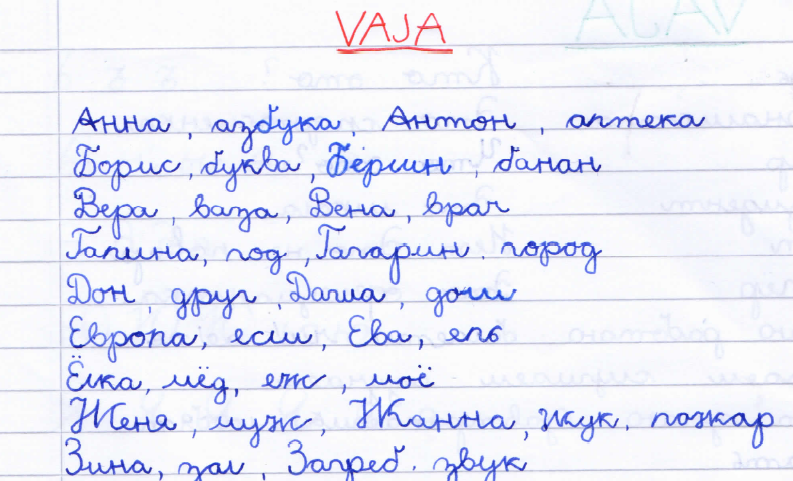 VAJA
Анна, азбука, Антон, аптека
Борис, буква, Берлин, банан
Вера, ваза, Вена, врач
Галина, год, Гагарин, город
Дон, друг, Даша, дом
Европа, если, Ева, ель
Ёлка, мёд, еж, моё
Женя, муж, Жанна, жук, пожар
Зина, зал, Загреб, звук